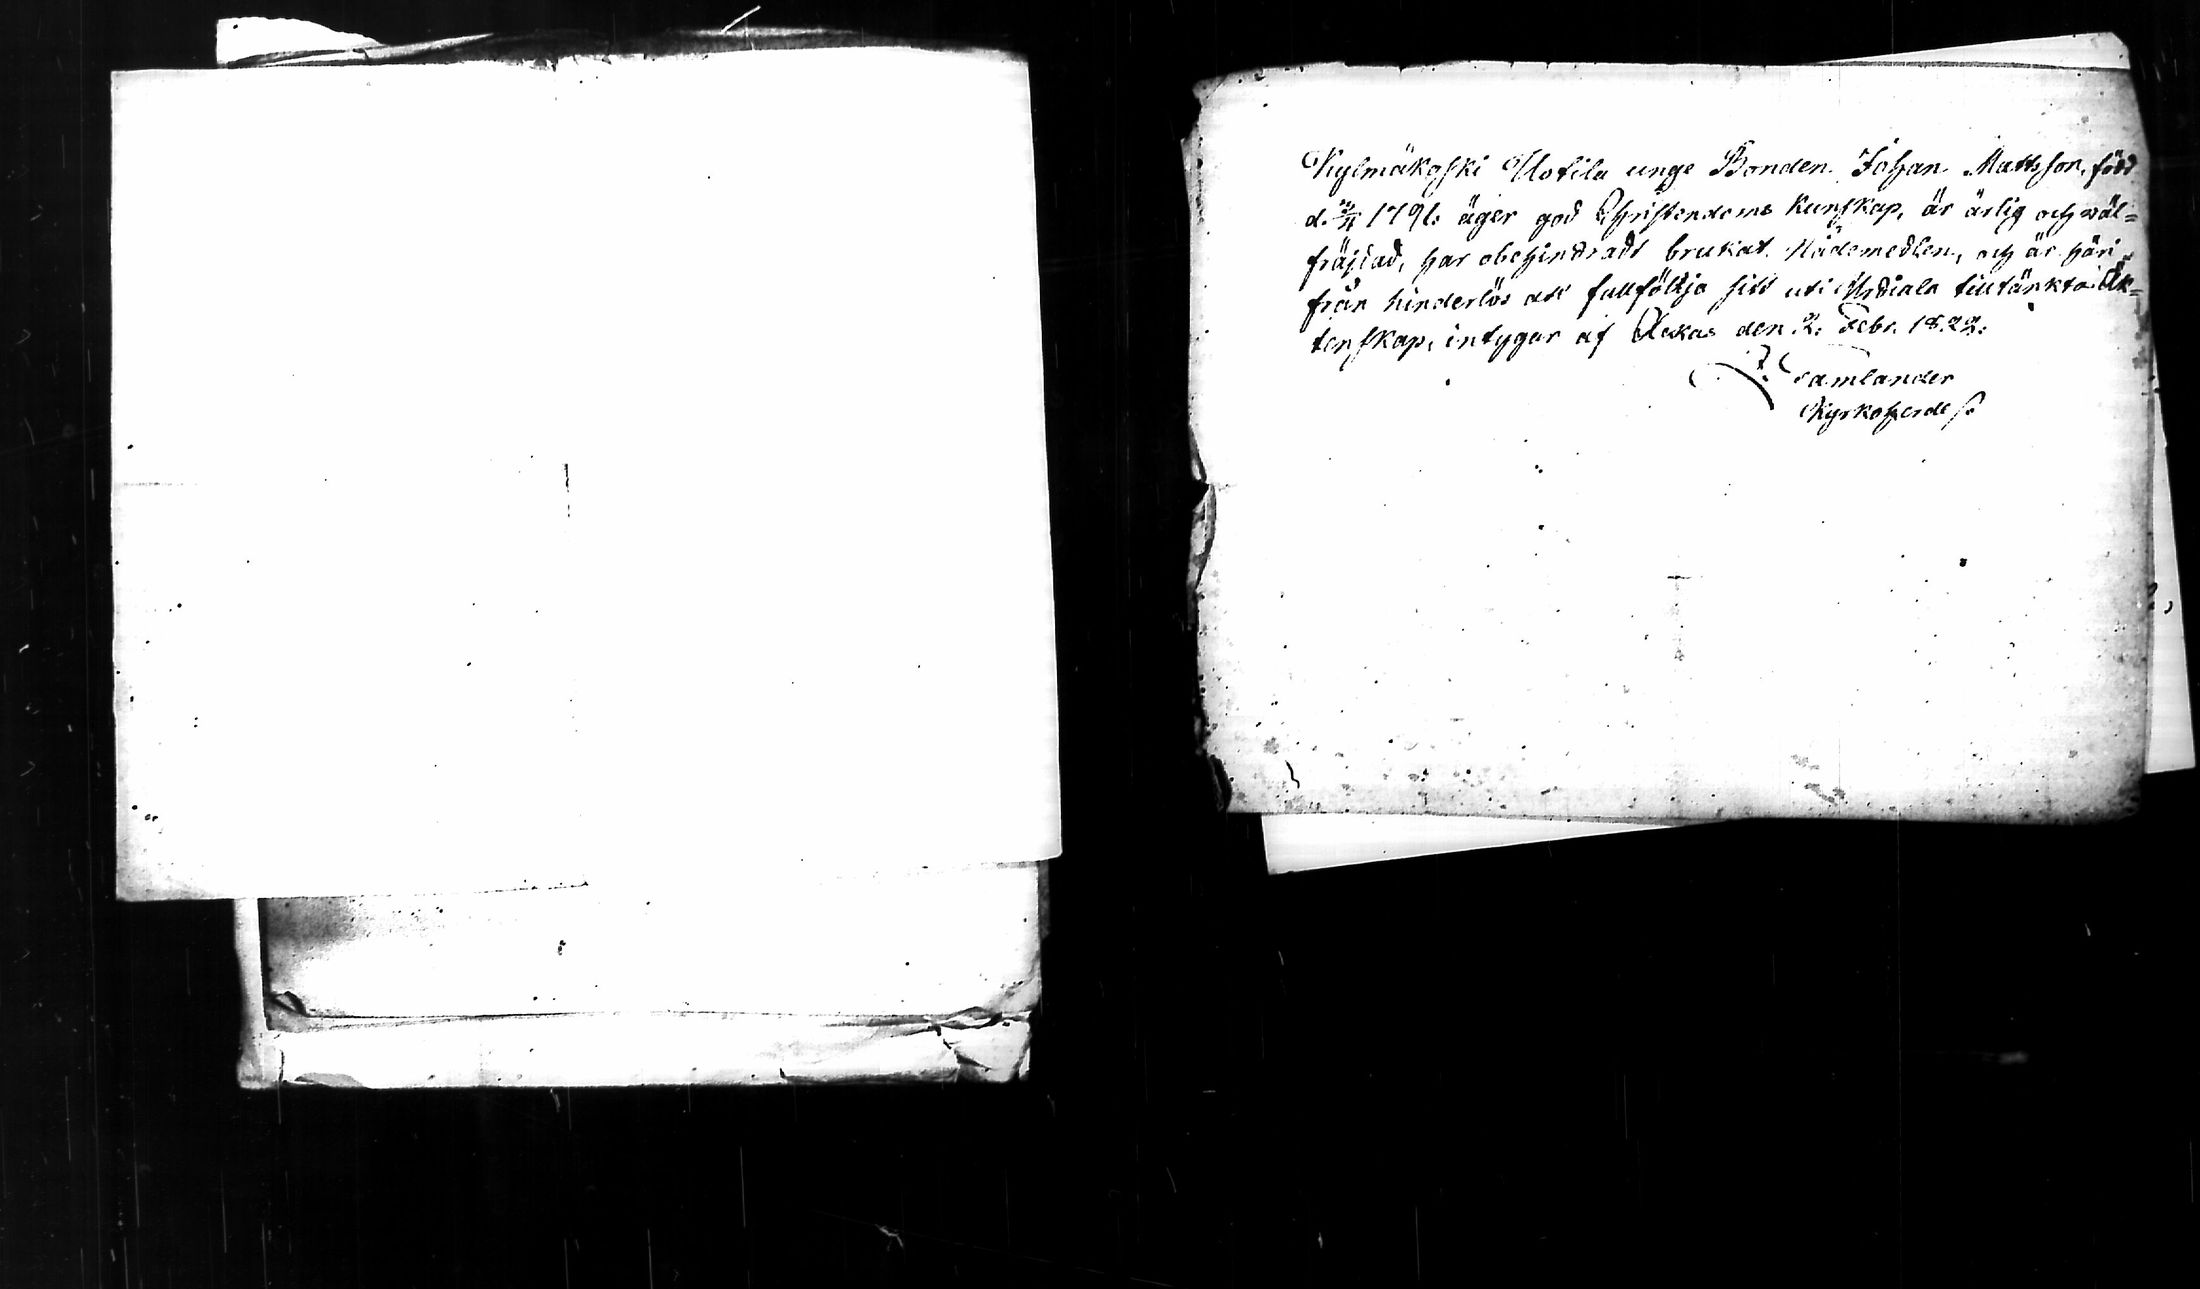 Kylmäkoski Uotila unge Bonden Johan Mattsson, född
d. 1791. äger god Christendoms kunskap, är ärlig och wäl=
fräjdad, har obehindradt brukat Nådemedlen, och är häri=
från hinderlös att fullfölja sitt uti Urdiala tilltänkta Äk=
tenskap, intygar af Ackas den 2. Febr. 1822.
Tamlander
Kyrkoherde